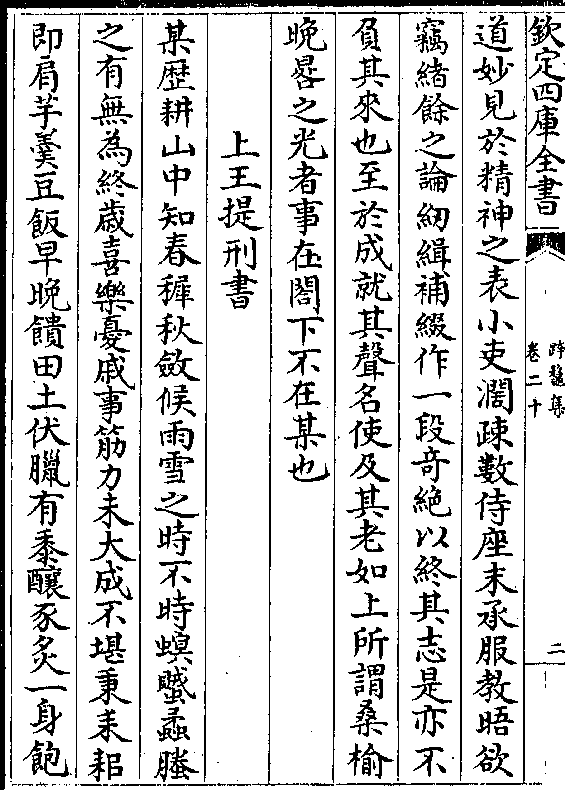 欽定四庫全書
跨鼇集
卷二十
二
道妙見於精神之表小吏濶疎數侍座末承服教晤欲
竊緒餘之論紉緝補綴作一段奇絶以終其志是亦不
負其來也至於成就其聲名使及其老如上所謂桑榆
晚晷之光者事在閤下不在某也
上王提刑書
某歴耕山中知春穉秋斂候雨雪之時不時螟蟘蟊螣
之有無為終歲喜樂憂戚事筋力未大成不堪秉耒耜
即肩芋羹豆飯早晚饋田土伏臘有黍釀豕炙一身飽